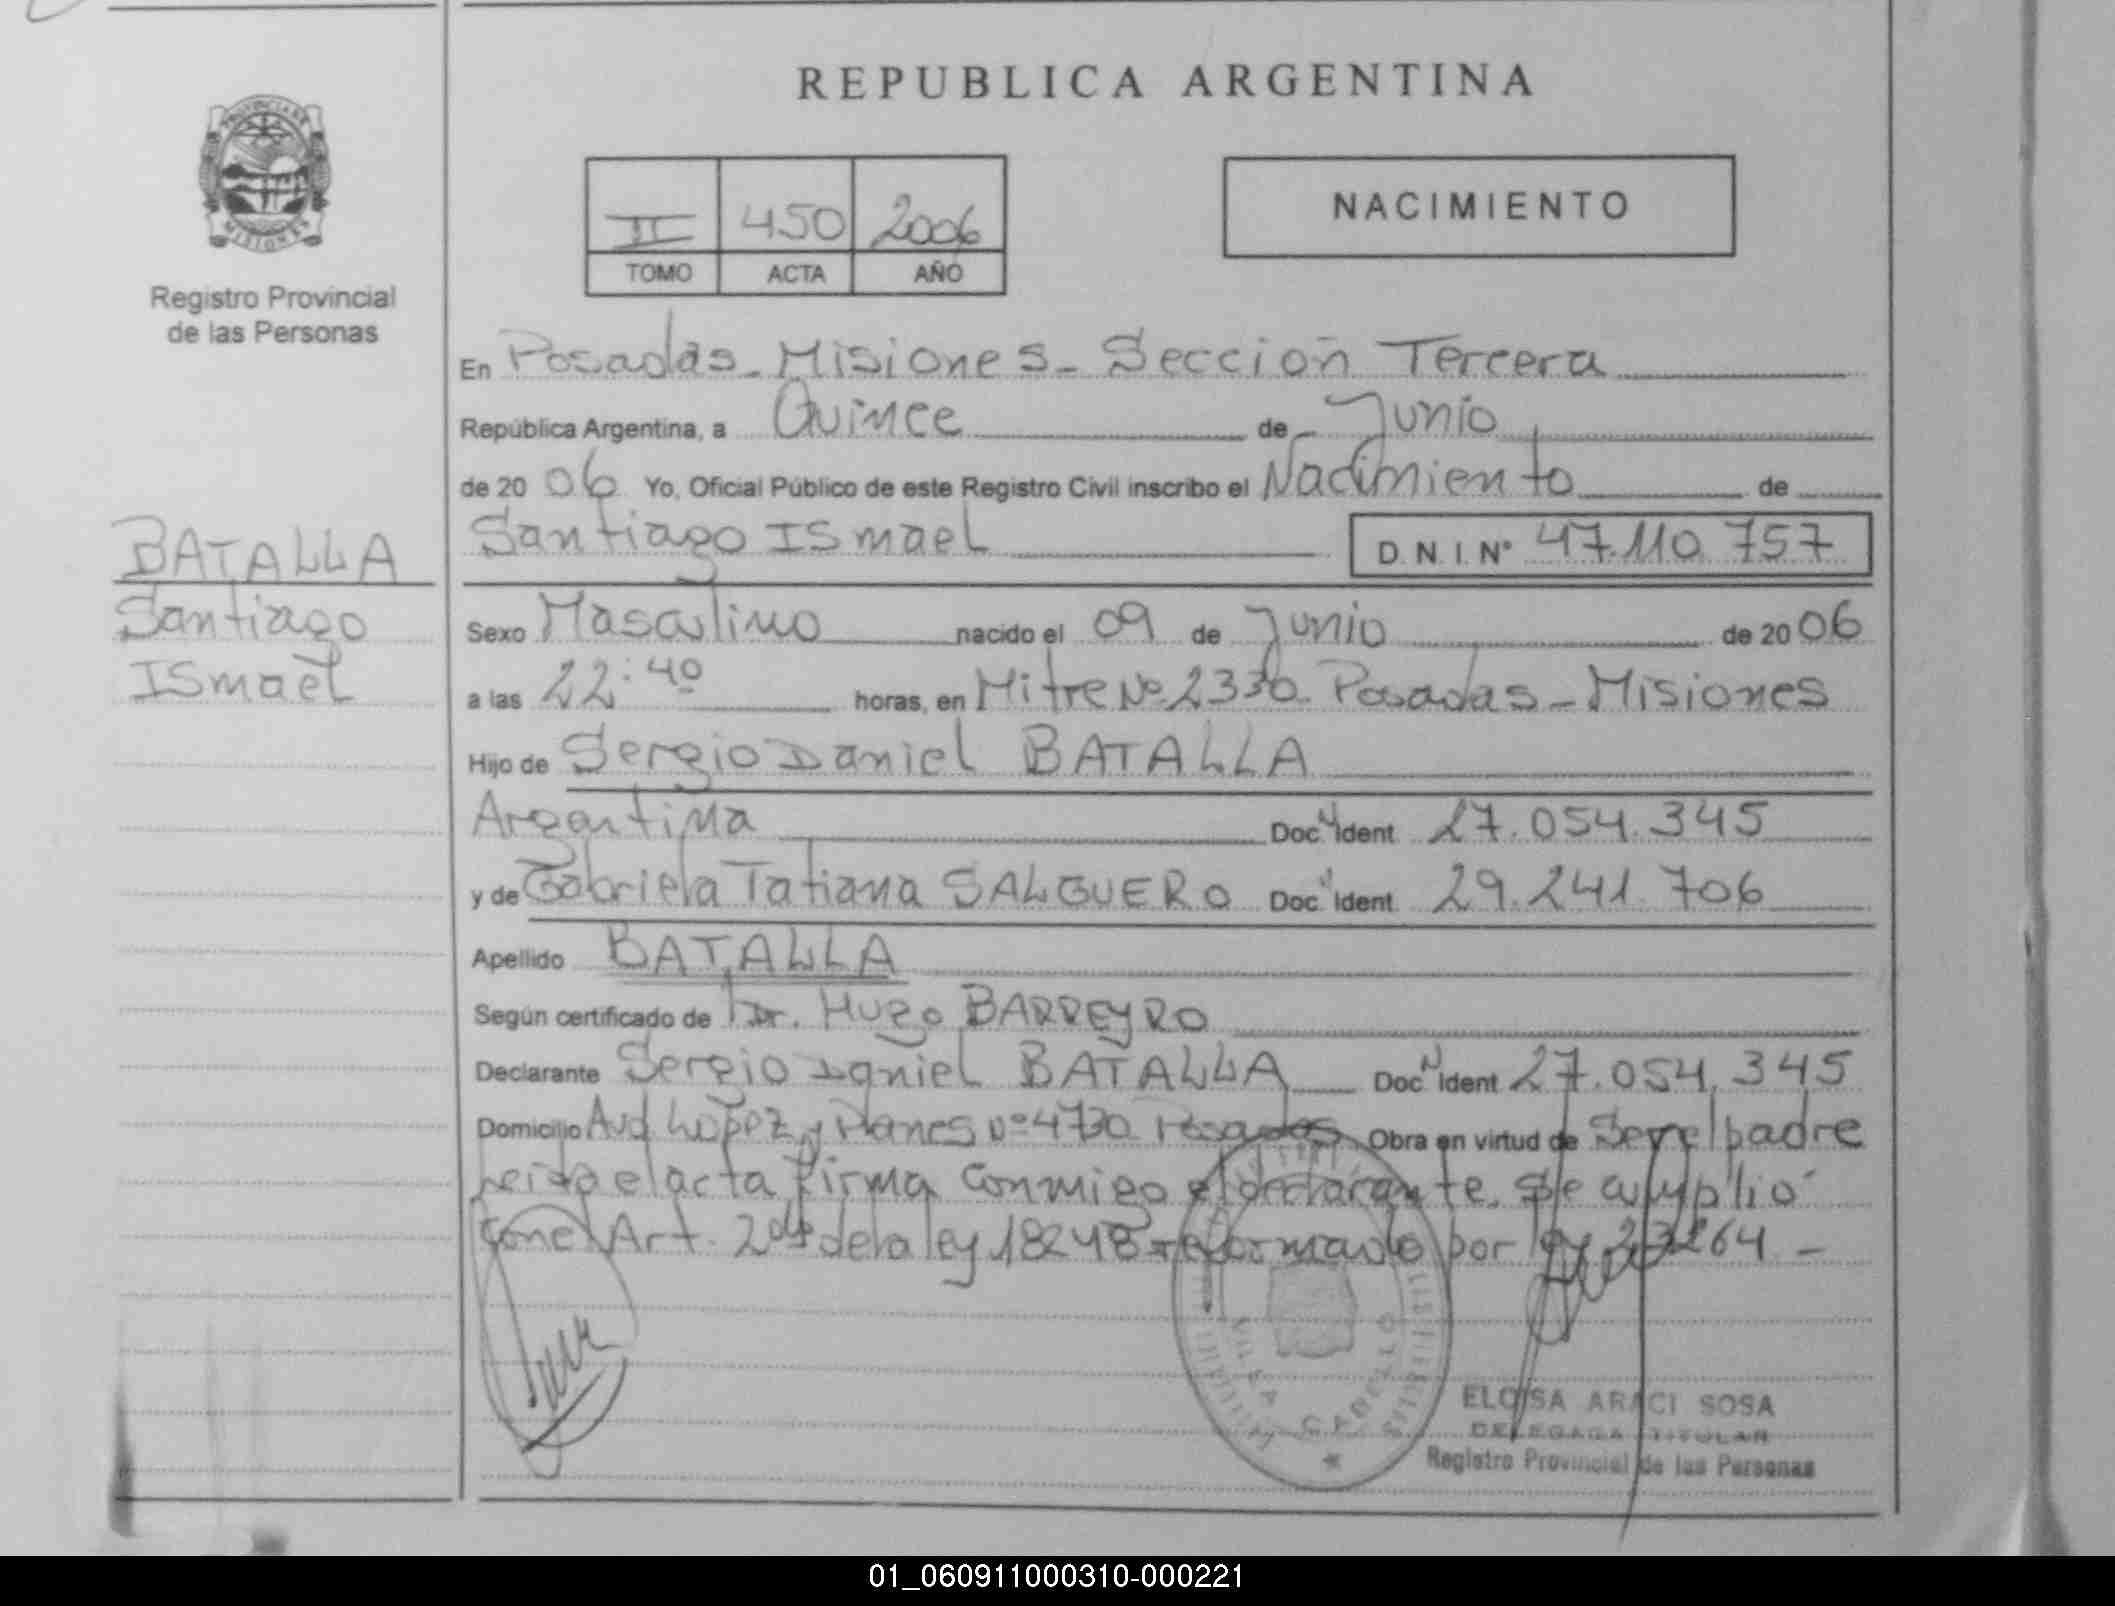 REPUBLICA ARGENTINA
PROVINCIA DE
MISIONES
Registro Provincial
de las Personas
II 450 2006
TOMO ACTA AÑO
NACIMIENTO
En Posadas - Misiones - Sección Tercera
República Argentina, a Quince de Junio
de 2006 Yo, Oficial Público de este Registro Civil inscribo el Nacimiento de
Santiago Ismael D.N.I. N° 47.110.757
BATALLA
Santiago
Ismael
Sexo Masculino nacido el 09 de Junio de 2006
a las 22:40 horas, en Mitre Nº 2330 Posadas - Misiones
Hijo de Sergio Daniel BATALLA
Argentina Doc. N Ident 27.054.345
y de Gabriela Tatiana SALGUERO Doc. N Ident 29.241.706
Apellido BATALLA
Según certificado de Dr. Hugo BARREYRO
Declarante Sergio Daniel BATALLA Doc N Ident 27.054.345
Domicilio Avd López y Planes Nº 4730 Posadas Obra en virtud de Ser el padre
Leida el acta firma conmigo el declarante. Se cumplió
con el Art. 2do de la ley 18248 reformado por ley 23264 -
VILLA CABELLO
ELOISA ARACI SOSA
DELEGADA TITULAR
Registro Provincial de las Personas
01_060911000310-000221